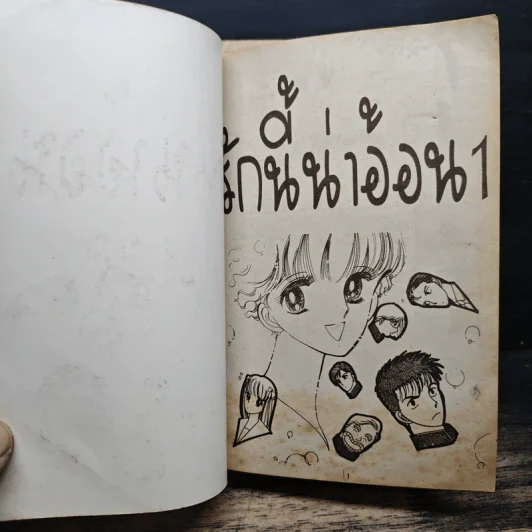 รักนี้น่าอ้อน 1